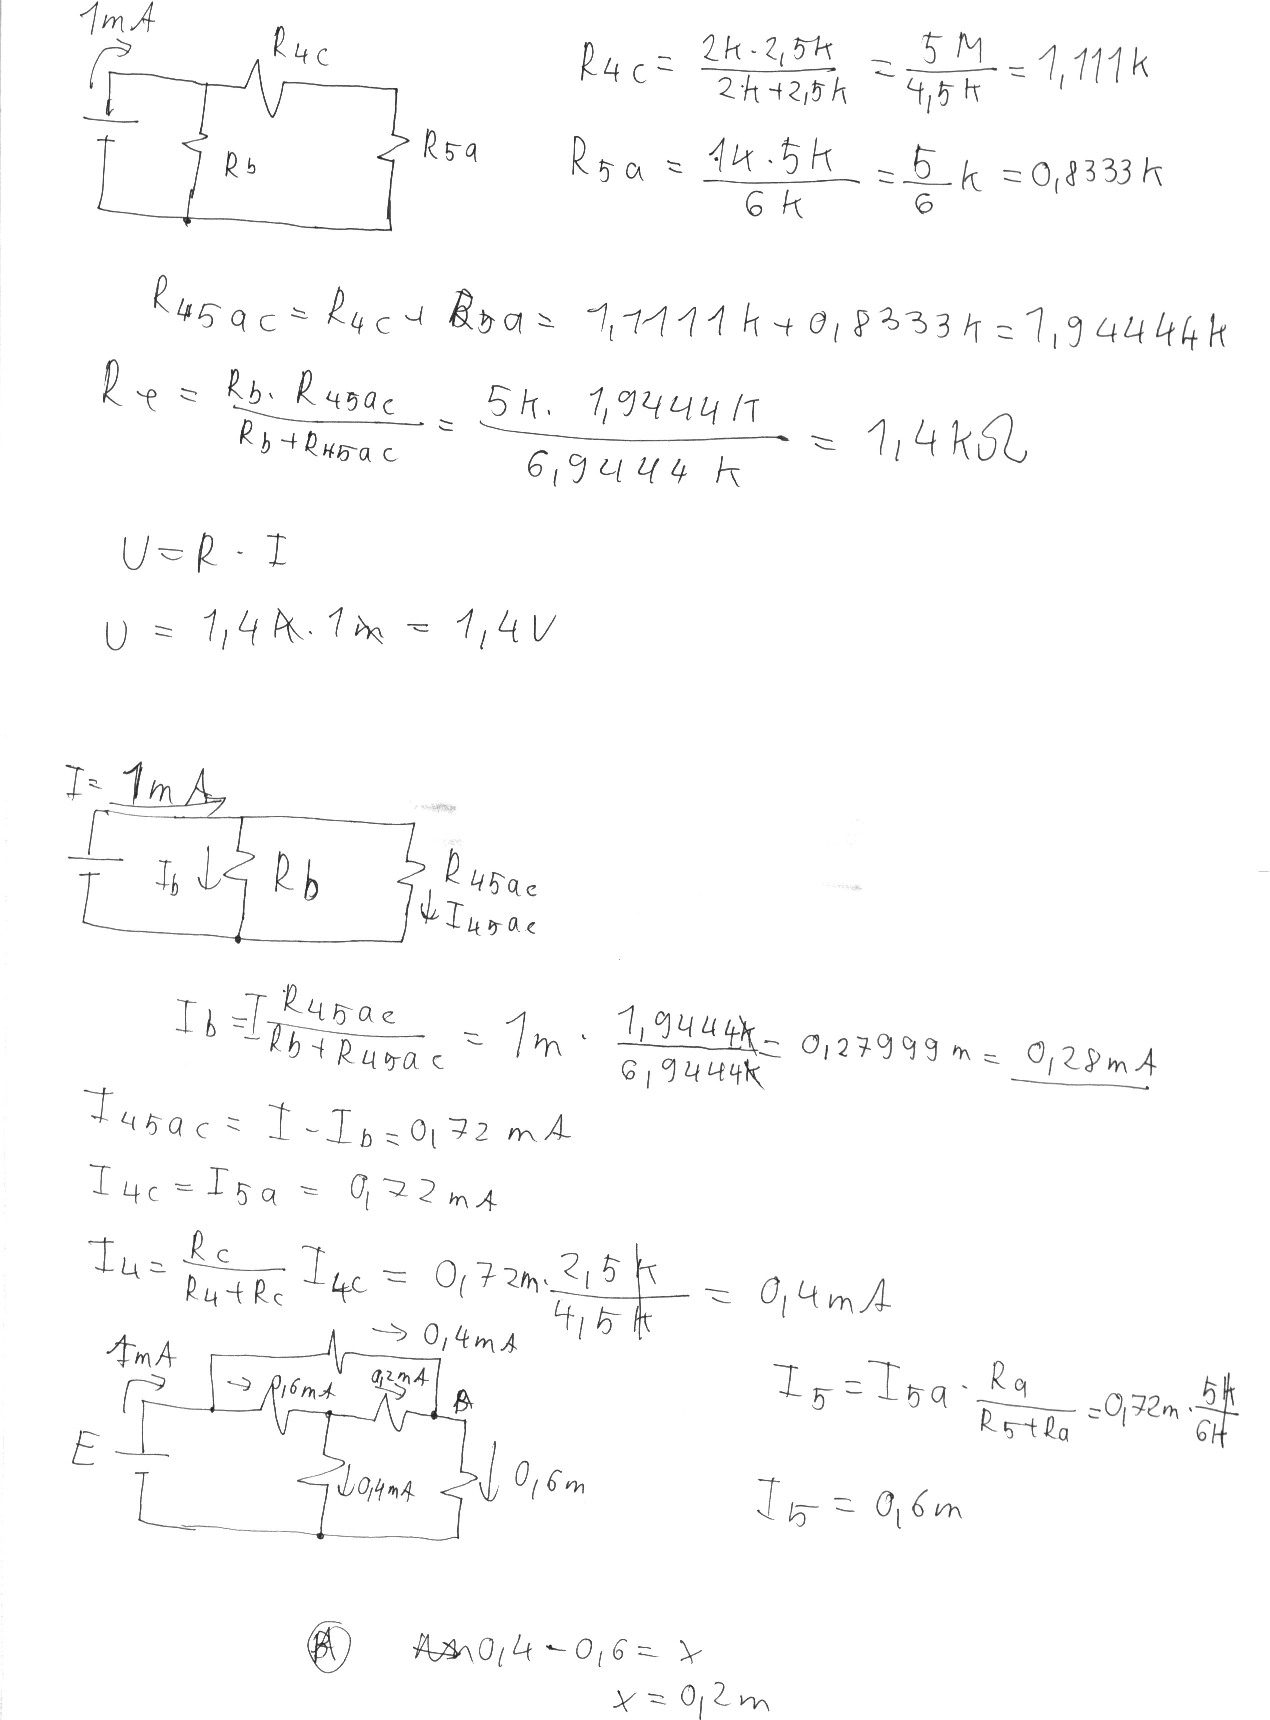 1mA
R4c
Rb
R5a
R4c = 2k·2,5k / 2k+2,5k = 5M / 4,5k = 1,111k
R5a = 1k·5k / 6k = 5/6 k = 0,8333k
R45ac = R4c + R5a = 1,1111k + 0,8333k = 1,94444k
Re = Rb·R45ac / Rb+R45ac = 5k·1,9444k / 6,9444k = 1,4kΩ
U = R · I
U = 1,4k·1m = 1,4V
I = 1mA
Ib ↓ Rb
R45ac
↓ I45ac
Ib = I R45ac / Rb+R45ac = 1m · 1,9444k / 6,9444k = 0,27999m = 0,28mA
I45ac = I - Ib = 0,72mA
I4c = I5a = 0,72mA
I4 = Rc / R4+Rc I4c = 0,72m · 2,5k / 4,5k = 0,4mA
→ 0,4mA
1mA
→ 0,6mA
0,2mA
E
↓0,4mA
↓ 0,6m
I5 = I5a · Ra / R5+Ra = 0,72m · 5k / 6k
I5 = 0,6m
0,4 - 0,6 = x
x = 0,2m